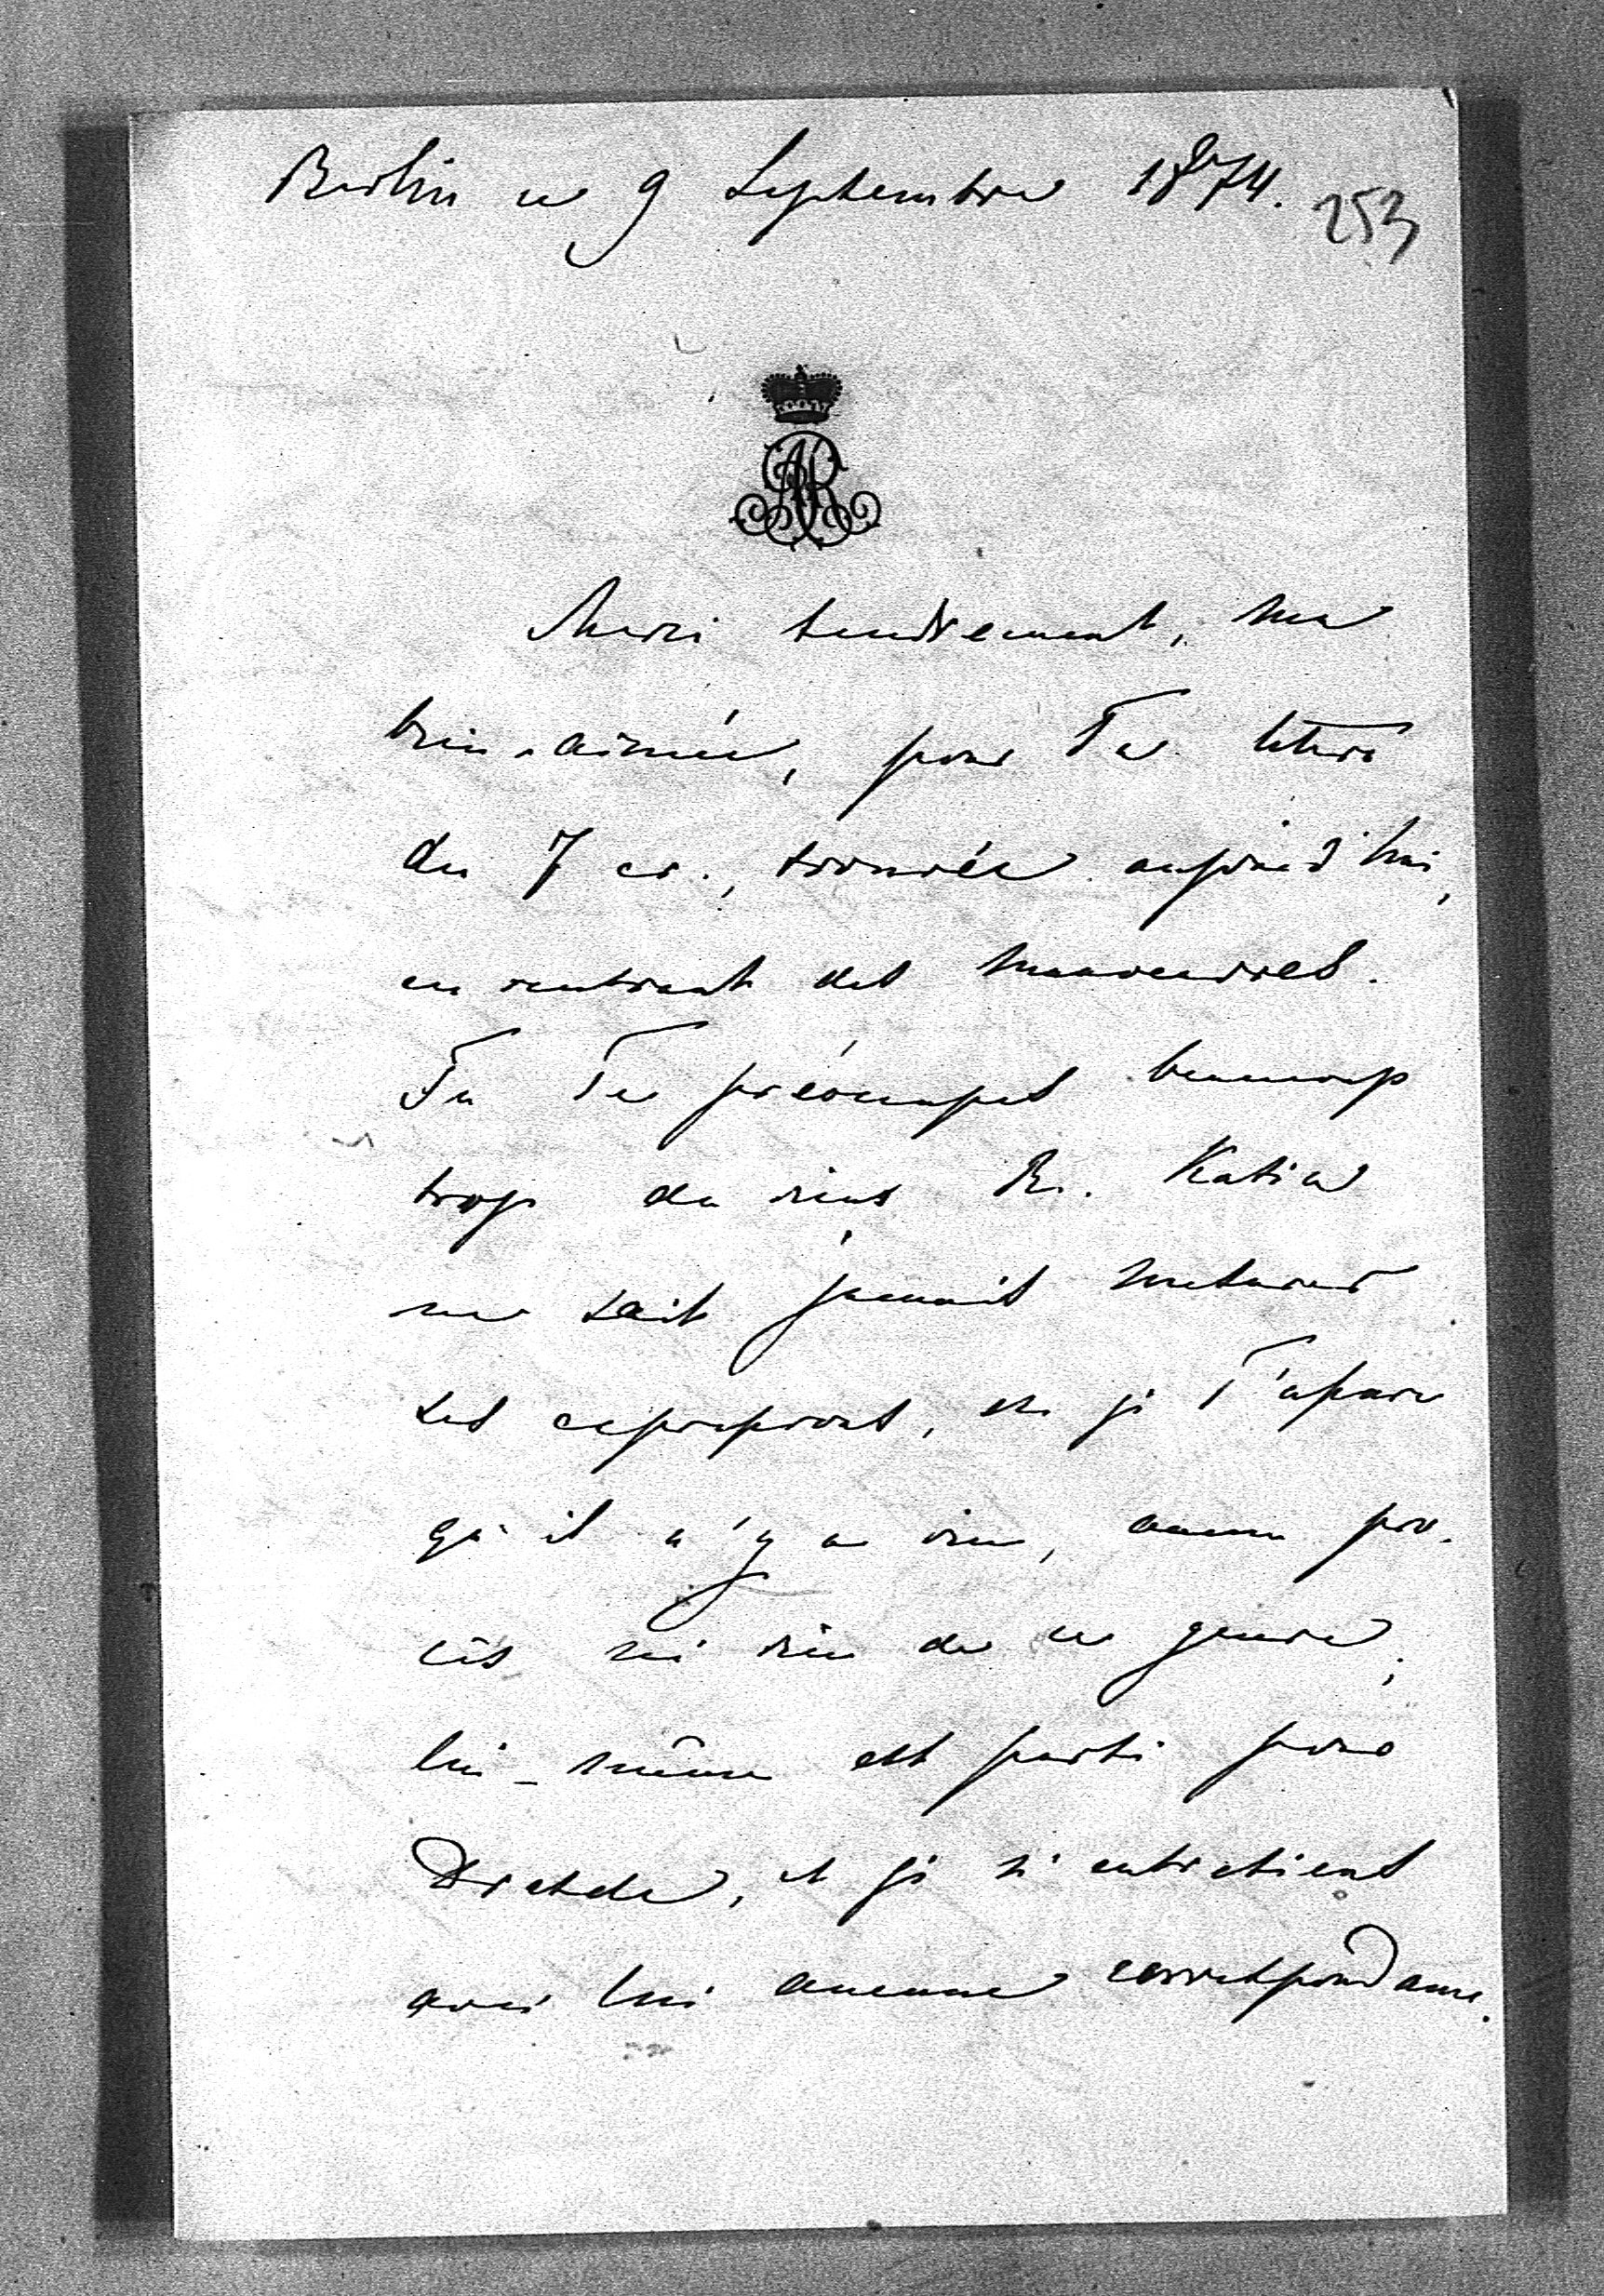 Berlin ce 9 Septembre 1874.
253
AR
Merci tendrement, ma
bien-aimée, pour Ta lettre
du 7 cr., trouvée aujourd'hui,
en rentrant des manoeuvres.
Tu Te préoccupes beaucoup
trop du sieur B. Katia
ne sait jamais mesurer
ses expressions, et je T'assure
qu'il n'y a rien, aucun pro-
cès ni rien de ce genre,
lui-même est parti pour
Dresde, et je n'entretiens
avec lui aucune correspondance.